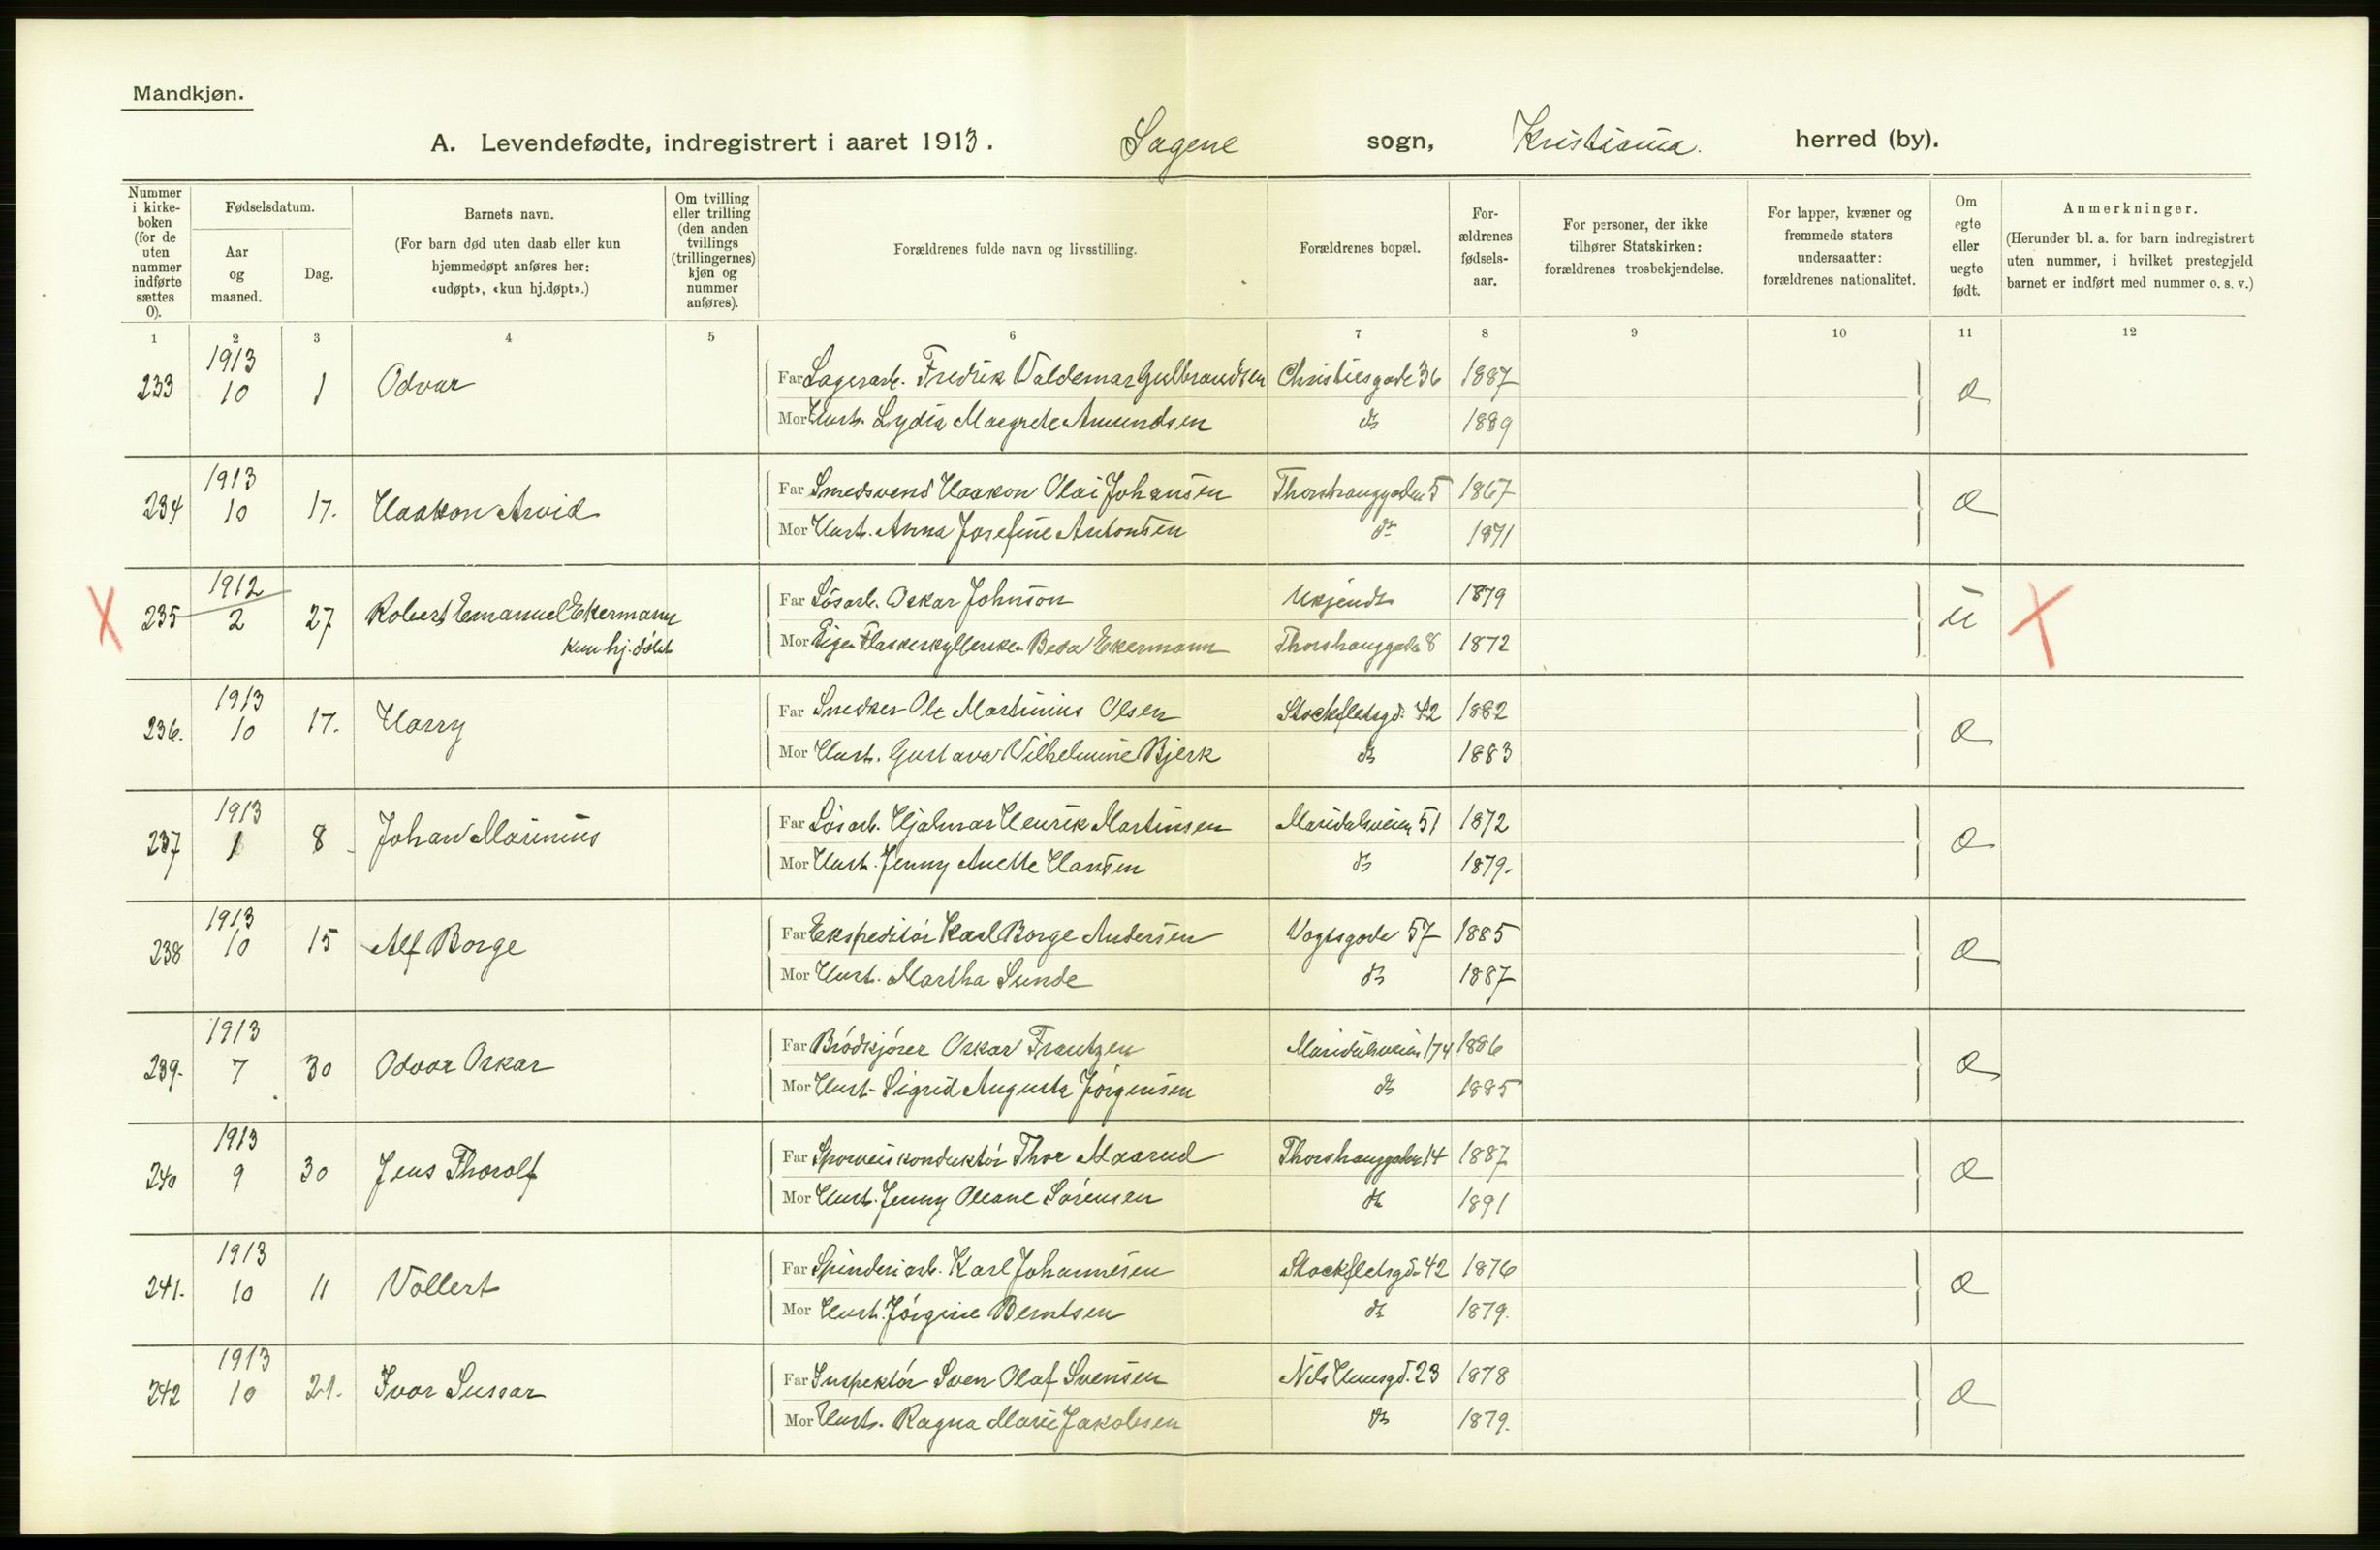 Mandkjøn.
A. Levendefødte, indregistrert i aaret 1913. Sagene sogn, Kristiania. herred (by).
Nummer i kirke-boken (for de uten nummer indførte sættes 0).
Fødselsdatum.
Aar og maaned.
Dag.
Barnets navn.
(For barn død uten daab eller kun hjemmedøpt anføres her: «udøpt», «kun hj.døpt».)
Om tvilling eller trilling (den anden tvillings (trillingernes) kjøn og nummer anføres).
Forældrenes fulde navn og livsstilling.
Forældrenes bopæl.
For-ældrenes fødsels-aar.
For personer, der ikke tilhører Statskirken: forældrenes trosbekjendelse.
For lapper, kvæner og fremmede staters undersaatter: forældrenes nationalitet.
Om egte eller uegte født.
Anmerkninger.
(Herunder bl. a. for barn indregistrert uten nummer, i hvilket prestegjeld barnet er indført med nummer o. s. v.)
1 2 3 4 5 6 7 8 9 10 11 12
233 1913 10 1 Odvar Far Lagerarb. Fredrik Valdemar Gulbrandsen Christiesgade 36 1887
Mor Hust. Lydia Maegrete Amundsen do 1889
234 1913 10 17. Haakon Arvid Far Smedsvend Haakon Olai Johansen Thorshauggaden 5 1867
Mor Hust. Anna Josefine Antonsen do 1871
X 235 1912 2 27 Robert Emanuel Ekermann Far Løsarb. Oskar Johnson Ukjendt 1879 u X
Kun hj. døbt Mor Pige Flaskeskyllerske Beda Ekermann Thorshauggaden 8 1872
236. 1913 10 17. Harry Far Snedker Ole Martinius Olsen Stockfletsgd. 42 1882
Mor Hust. Gustava Vilhelmine Bjerk do 1883
237 1913 1 8 Johan Marinius Far Løsarb. Hjalmar Henrik Martinsen Maridalsveien 51 1872
Mor Hust. Jenny Anette Hansen do 1879.
238 1913 10 15 Alf Borge Far Ekspeditør Karl Borge Andersen Vogtsgade 57 1885
Mor Hust. Martha Sunde do 1887
239. 1913 7 30 Odvar Oskar Far Brødkjører Oskar Frantzen Maridalsveien 174 1886
Mor Hust. Sigrid Augusta Jørgensen do 1885
240 1913 9 30 Jens Thorolf Far Sporveiskonduktør Thor Maarud Thorshauggaden 14 1887
Mor Hust. Jenny Oleane Sørensen do 1891
241. 1913 10 11 Vollert Far Spinderiarb. Karl Johannesen Stockfletsgd. 42 1876
Mor Hust. Jørgine Berntsen do 1879.
242 1913 10 21. Ivar Far Inspektør Sven Olaf Svensen 23 1878
Mor Hust. Ragna Marie Jakobsen do 1879.